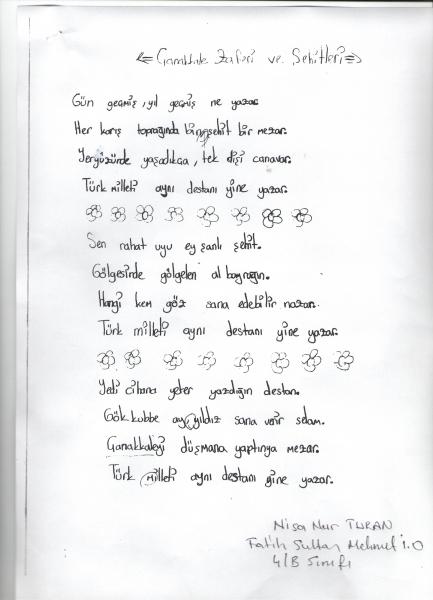 Çanakkale Zaferi ve Şehitleri
Gün geçmiş, yıl geçmiş ne yazar
Her karış toprağında bin şehit bir mezar.
Yeryüzünde yaşadıkça, tek dişi canavar.
Türk milleti aynı destanı yine yazar.
Sen rahat uyu ey şanlı şehit.
Gölgesinde gölgelen al bayrağın.
Hangi kem göz sana edebilir nazar.
Türk milleti aynı destanı yine yazar.
Yedi cihana yeter yazdığın destan.
Gök kubbe ay yıldız sana verir selam.
Çanakkaleyi düşmana yaptınya mezar.
Türk milleti aynı destanı yine yazar.
Nisa Nur TURAN
Fatih Sultan Mehmet İ.O
4/B Sınıfı